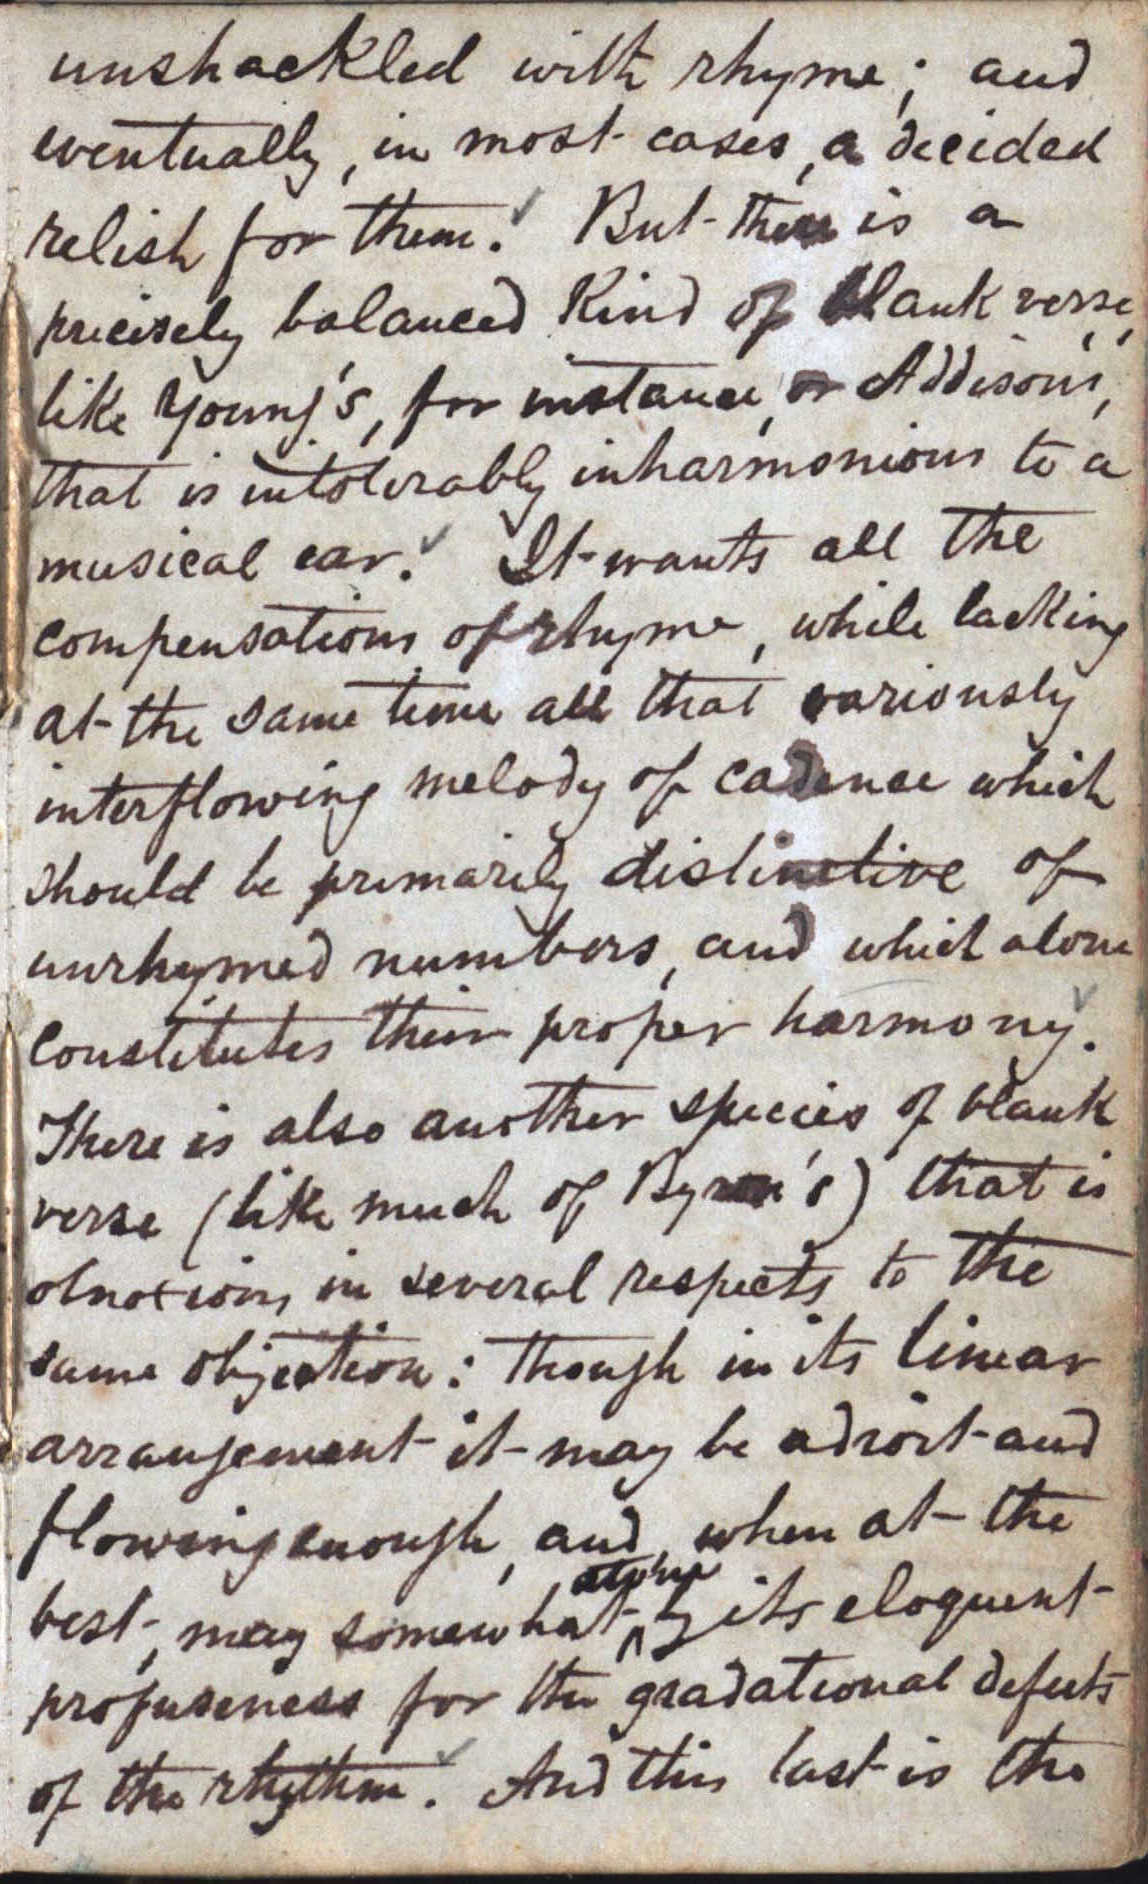 unshackled with rhyme; and
eventually, in most cases, a decided
relish for them. But there is a
precisely balanced kind of blank verse,
like Young's, for instance, or Addison's,
that is intolerably inharmonious to a
musical ear. It wants all the
compensations of rhyme, while lacking
at the same time all that variously
interflowing melody of cadence which
should be primarily distinctive of
unrhymed numbers, and which alone
constitutes their proper harmony.
There is also another species of blank
verse (like much of Byron's) that is
obnoxious in several respects to the
same objection: though in its linear
arrangement it may be adroit and
flowing enough, and, when at the
best, may somewhat atone by its eloquent
profuseness for the gradational defects
of the rhythm. And this last is the